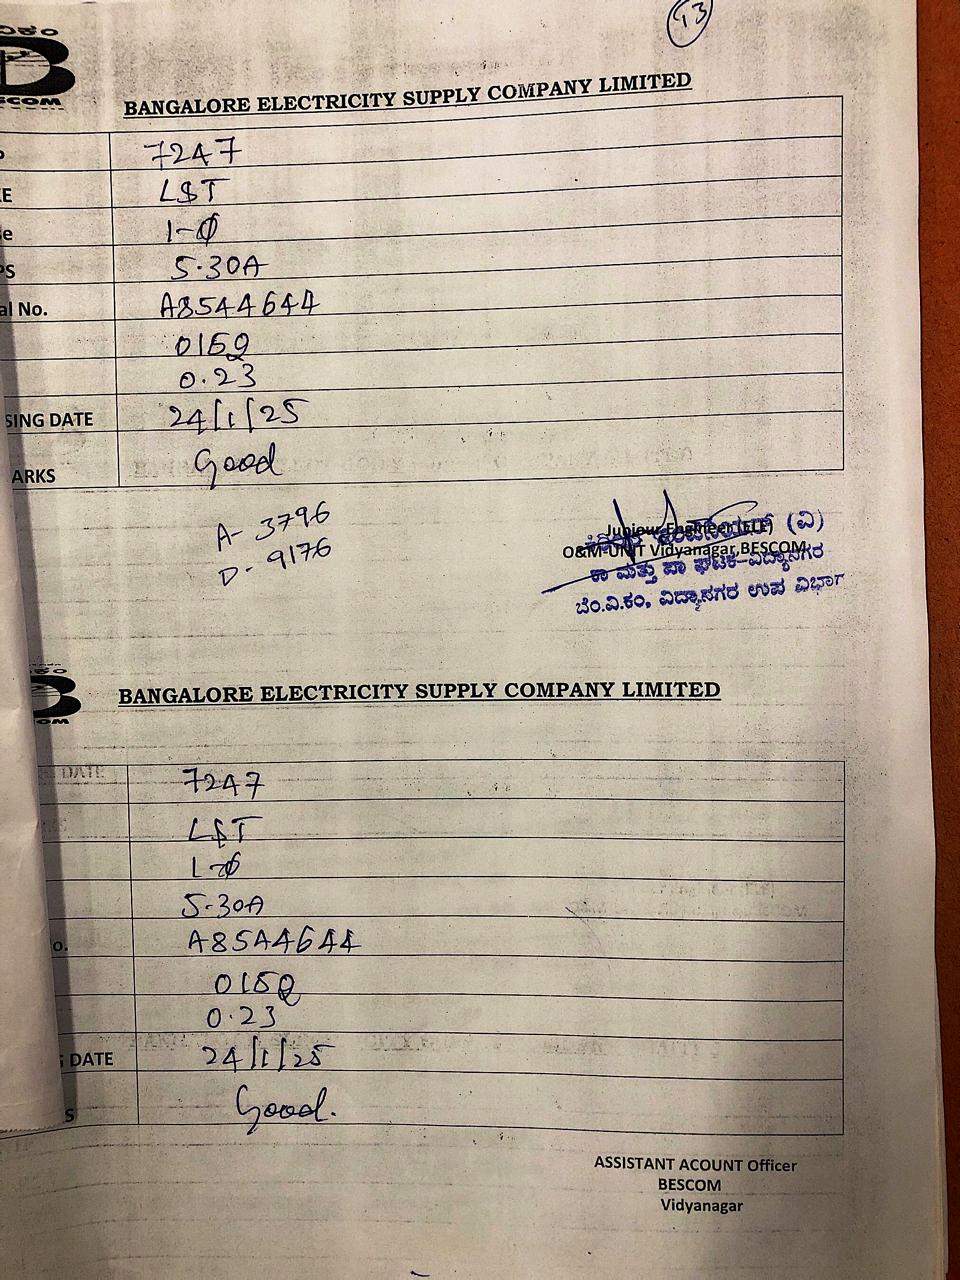 13
BESCOM
BANGALORE ELECTRICITY SUPPLY COMPANY LIMITED
7247
L&T
1-Φ
5-30A
al No. A8544644
015Q
0.23
SING DATE 24/1/25
ARKS Good
A- 3796
D- 9176
Juniour Engineer (ELE) (ವಿ)
O&M UNIT Vidyanagar,BESCOM
ಕಾ ಮತ್ತು ಪಾ ಘಟಕ-ವಿದ್ಯಾನಗರ
ಬೆಂ.ವಿ.ಕಂ, ವಿದ್ಯಾನಗರ ಉಪ ವಿಭಾಗ
BANGALORE ELECTRICITY SUPPLY COMPANY LIMITED
7247
L&T
1-Φ
5-30A
o. A8544644
015Q
0.23
DATE 24/1/25
S Good.
ASSISTANT ACOUNT Officer
BESCOM
Vidyanagar